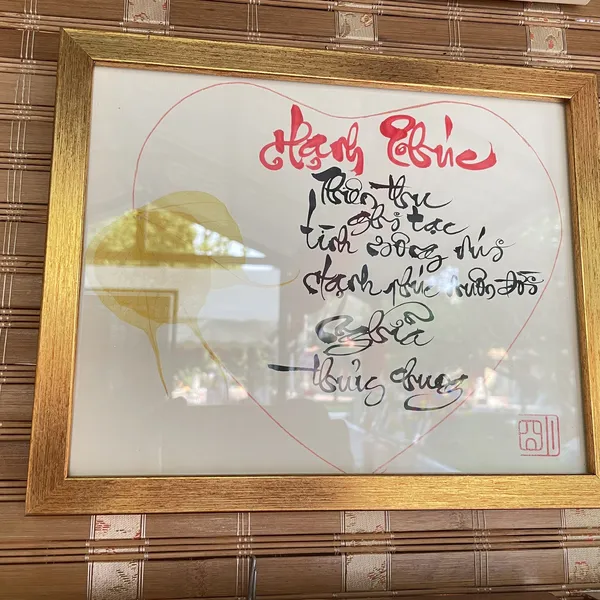 Hạnh Phúc
Thiên thu
ghi tạc
tình sông núi
Hạnh phúc muôn đời
Nghĩa
thủy chung